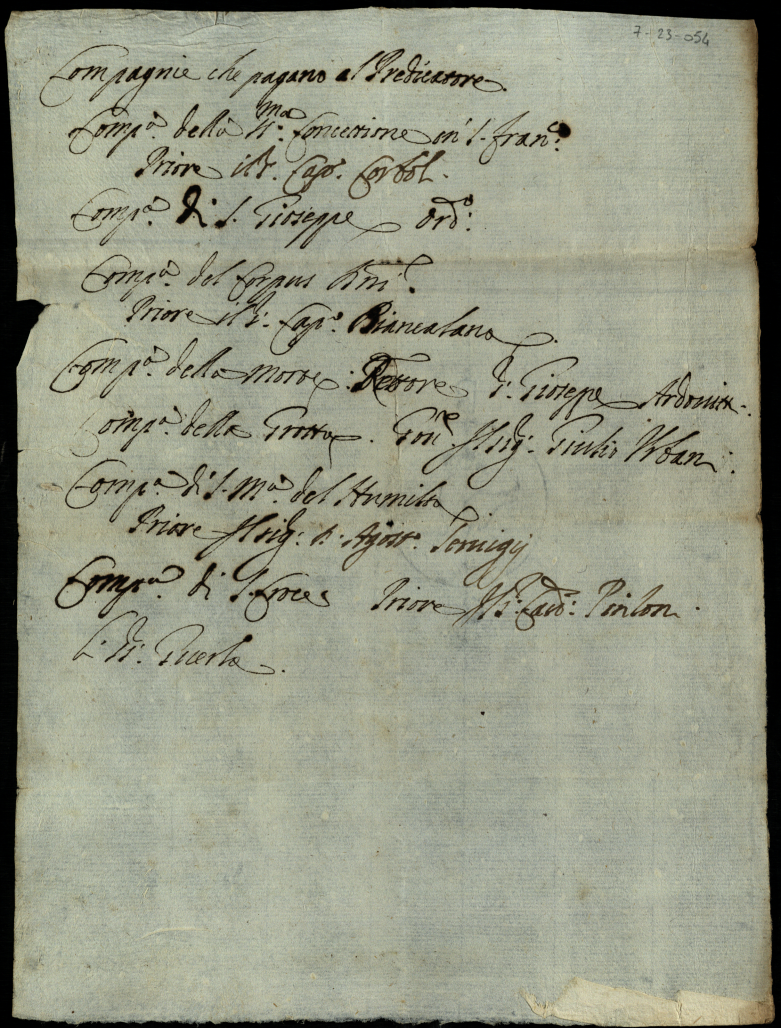 7-23-054
Compagnie che pagano al Predicatore
Comp.a della SS.ma Concettione in S. Fran.co
Priore il S. Cap.o Corbol.
Comp.a di S. Gioseppe Ord.o
Comp.a del Corpus Dni.
Priore il S. Cap.o Biancalana
Comp.a della Morte. Rettore S. Gioseppe
Comp.a della Grotta. Gou.re Il Sig. Giulio Urban:
Comp.a di S. M.a del Humiltà
Priore Il Sig. Agost.
Comp.a di S. Croce Priore Il S.